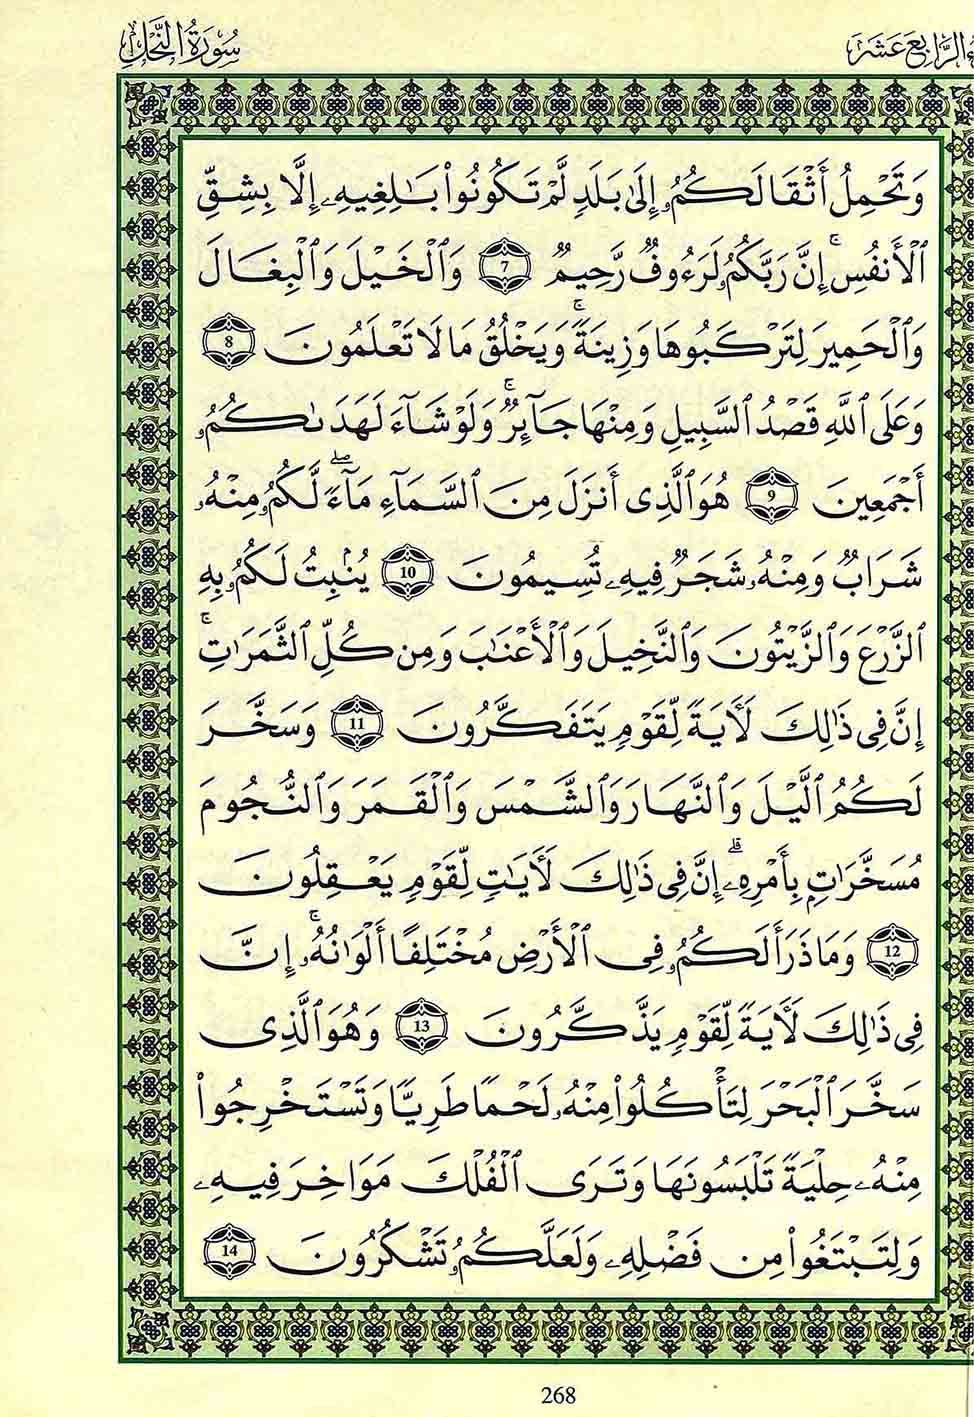 ءُ الرَّابِعَ عَشَرَ
سُورَةُ النَّحْلِ
وَتَحْمِلُ أَثْقَالَكُمُۥٓ إِلَىٰ بَلَدٍ لَّمْ تَكُونُوا۟ بَٰلِغِيهِۦٓ إِلَّا بِشِقِّ
ٱلْأَنفُسِۚ إِنَّ رَبَّكُمُۥ لَرَءُوفٌ رَّحِيمٌ 7 وَٱلْخَيْلَ وَٱلْبِغَالَ
وَٱلْحَمِيرَ لِتَرْكَبُوهَا وَزِينَةًۚ وَيَخْلُقُ مَا لَا تَعْلَمُونَ 8
وَعَلَى ٱللَّهِ قَصْدُ ٱلسَّبِيلِ وَمِنْهَا جَآئِرٌۚ وَلَوْ شَآءَ لَهَدَىٰكُمُۥٓ
أَجْمَعِينَ 9 هُوَ ٱلَّذِىٓ أَنزَلَ مِنَ ٱلسَّمَآءِ مَآءًۖ لَّكُمُۥ مِنْهُۥ
شَرَابٌ وَمِنْهُۥ شَجَرٌ فِيهِۦ تُسِيمُونَ 10 يُنۢبِتُ لَكُمُۥ بِهِ
ٱلزَّرْعَ وَٱلزَّيْتُونَ وَٱلنَّخِيلَ وَٱلْأَعْنَٰبَ وَمِن كُلِّ ٱلثَّمَرَٰتِۚ
إِنَّ فِى ذَٰلِكَ لَأَيَةً لِّقَوْمٍ يَتَفَكَّرُونَ 11 وَسَخَّرَ
لَكُمُ ٱلَّيْلَ وَٱلنَّهَارَ وَٱلشَّمْسَ وَٱلْقَمَرَ وَٱلنُّجُومَ
مُسَخَّرَٰتٍۭ بِأَمْرِهِۦٓۗ إِنَّ فِى ذَٰلِكَ لَأَيَٰتٍ لِّقَوْمٍ يَعْقِلُونَ
12 وَمَا ذَرَأَ لَكُمُۥ فِى ٱلْأَرْضِ مُخْتَلِفًا أَلْوَٰنُهُۥٓۚ إِنَّ
فِى ذَٰلِكَ لَأَيَةً لِّقَوْمٍ يَذَّكَّرُونَ 13 وَهُوَ ٱلَّذِى
سَخَّرَ ٱلْبَحْرَ لِتَأْكُلُوا۟ مِنْهُۥ لَحْمًا طَرِيًّا وَتَسْتَخْرِجُوا۟
مِنْهُۥ حِلْيَةً تَلْبَسُونَهَا وَتَرَى ٱلْفُلْكَ مَوَاخِرَ فِيهِۦ
وَلِتَبْتَغُوا۟ مِن فَضْلِهِۦ وَلَعَلَّكُمُۥ تَشْكُرُونَ 14
268